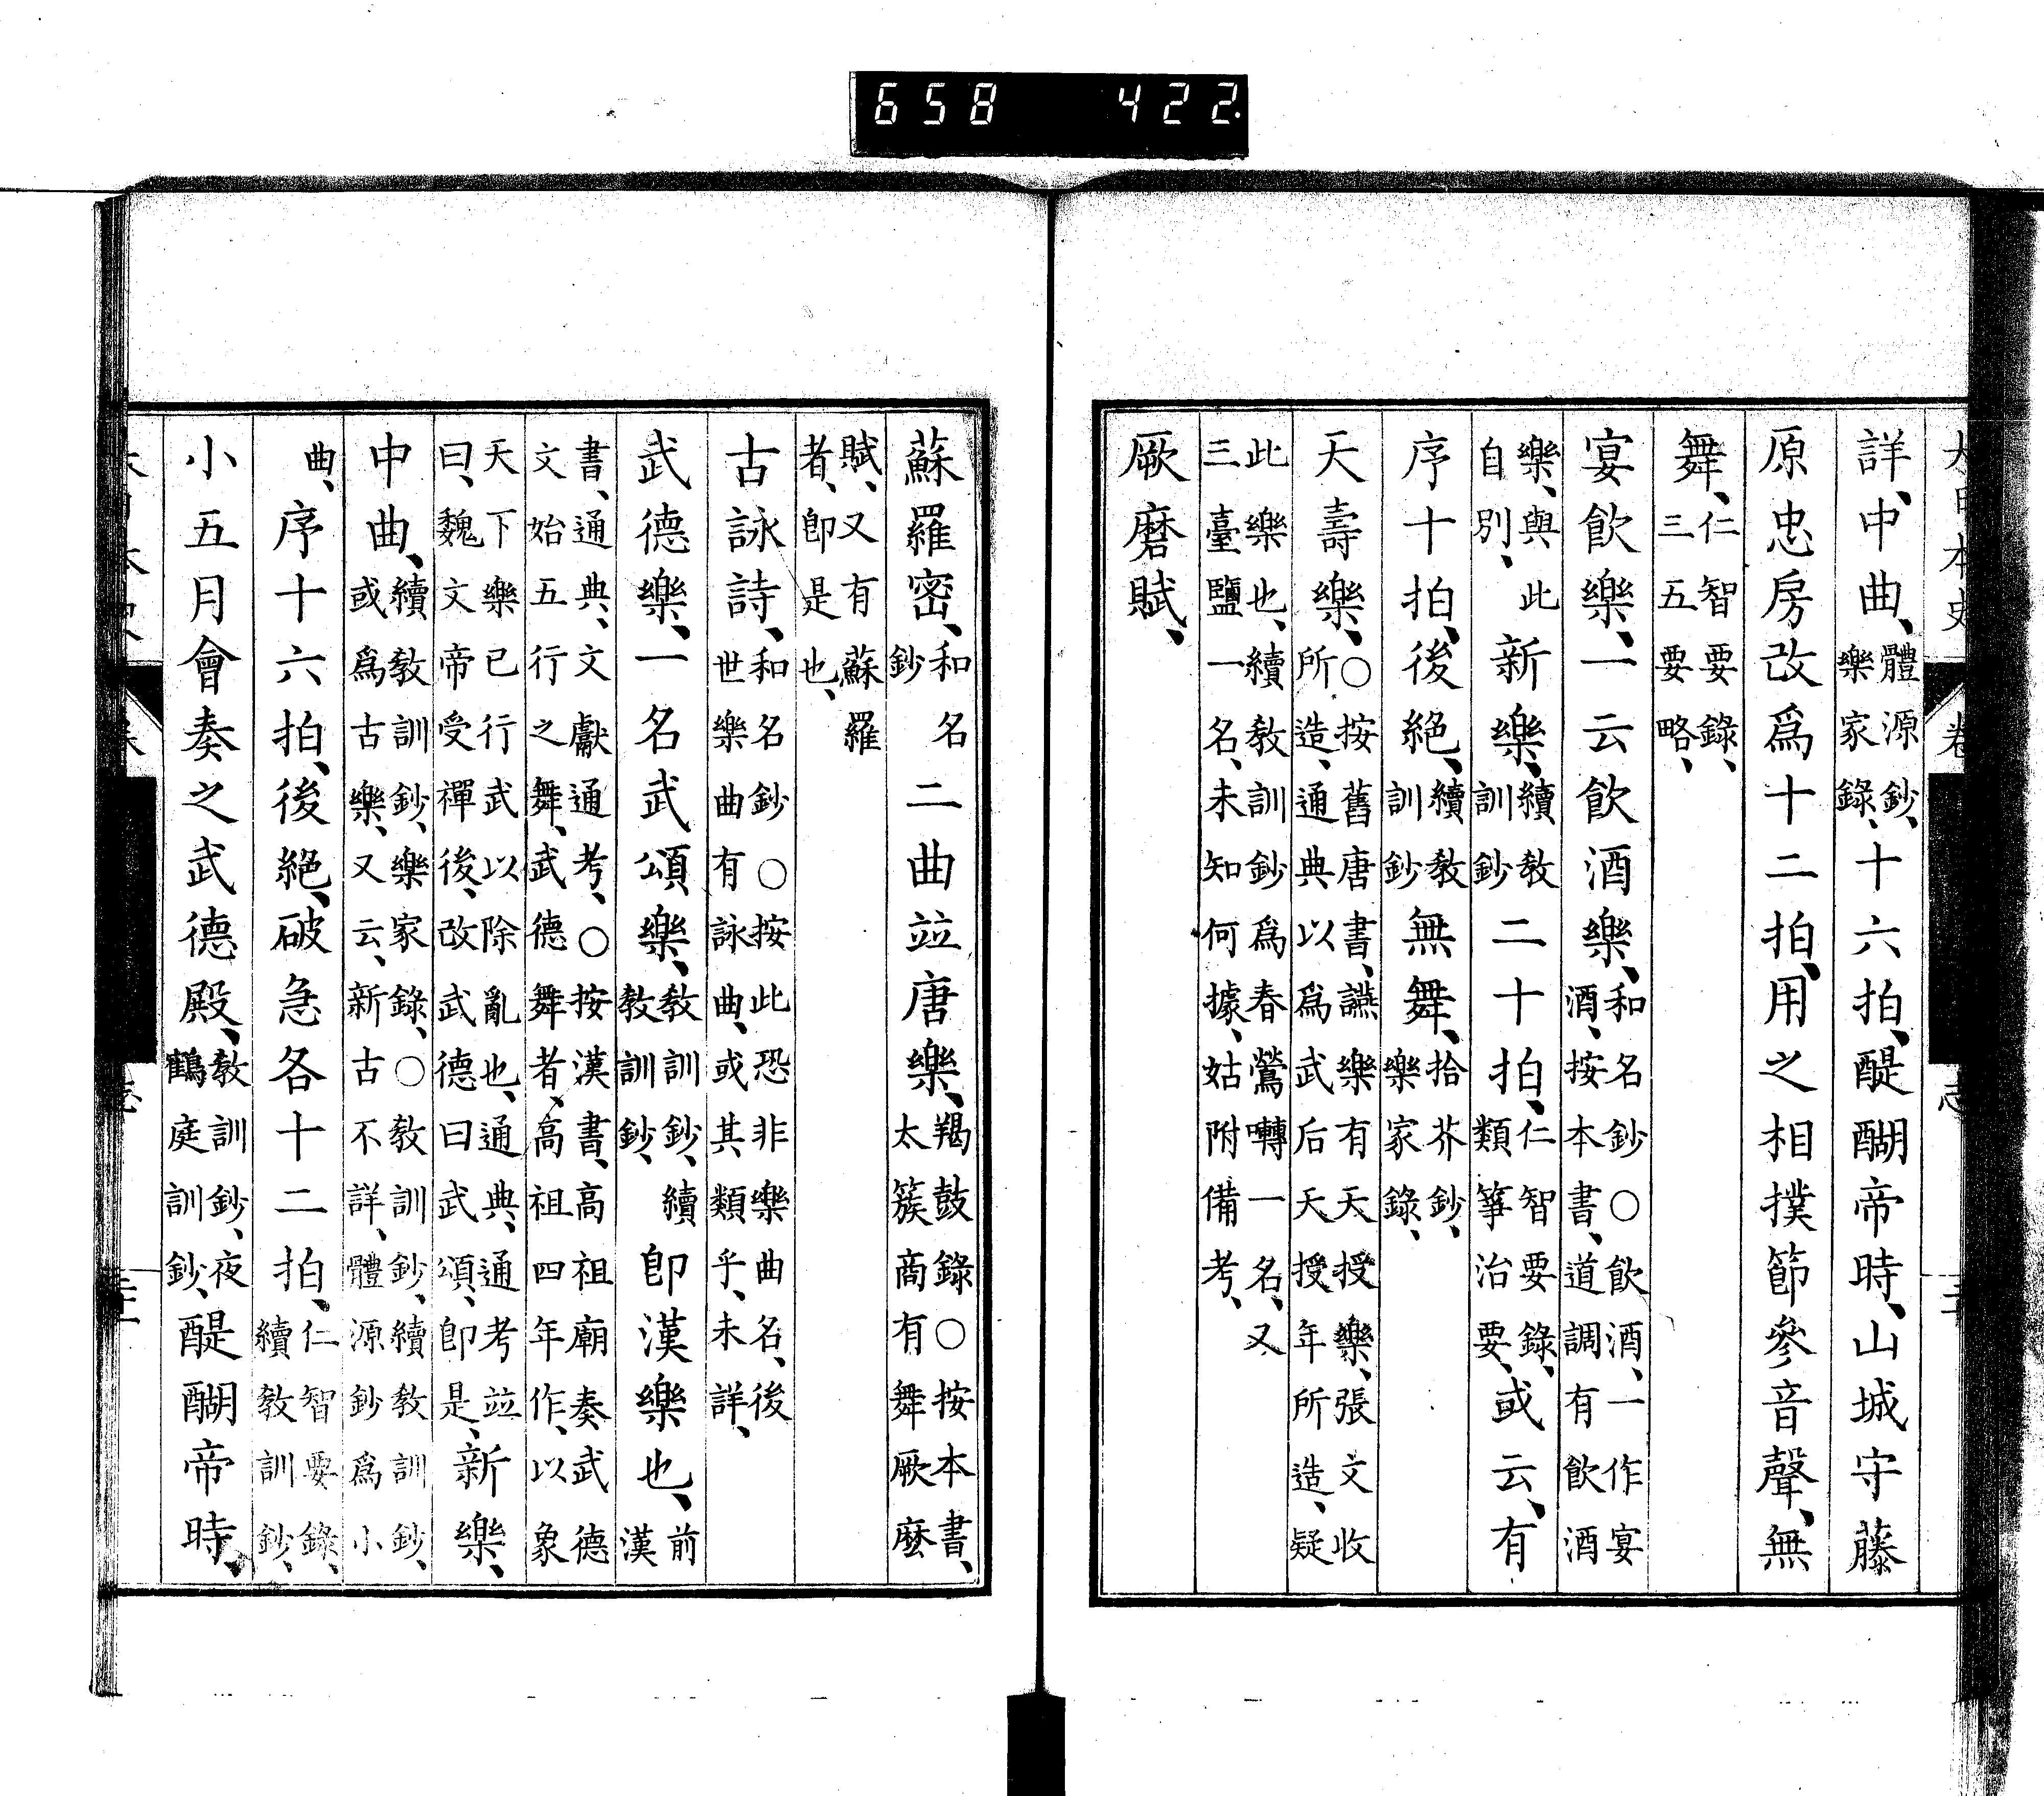 658 422
詳、中曲、體源鈔、樂家錄、十六拍、醍醐帝時、山城守藤
原忠房改爲十二拍、用之相撲節參音聲、無
舞、仁智要錄、三五要略、
宴飮樂、一云飮酒樂、和名鈔○飮酒、一作宴酒、按本書、道調有飮酒
樂、與此自別、新樂、續教訓鈔二十拍、仁智要錄、類箏治要、或云、有
序十拍、後絕、續教訓鈔無舞、拾芥鈔、樂家錄、
天壽樂、○按舊唐書、讌樂有天授樂、張文收所造、通典以爲武后天授年所造、疑
此樂也、續教訓鈔爲春鶯囀一名、又三臺鹽一名、未知何據、姑附備考、
厥磨賦、
蘇羅密、和名鈔二曲竝唐樂、羯鼓錄○按本書、太簇商有舞厥麼
賦、又有蘇羅者、卽是也、
古詠詩、和名鈔○按此恐非樂曲名、後世樂曲有詠曲、或其類乎、未詳、
武德樂、一名武頌樂、教訓鈔、續教訓鈔、卽漢樂也、前漢
書、通典、文獻通考、○按漢書、高祖廟奏武德文始五行之舞、武德舞者、高祖四年作、以象
天下樂已行武以除亂也、通典、通考竝曰、魏文帝受禪後、改武德曰武頌、卽是、新樂、
中曲、續教訓鈔、樂家錄、○教訓鈔、續教訓鈔、或爲古樂、又云、新古不詳、體源鈔爲小
曲、序十六拍、後絕、破急各十二拍、仁智要錄、續教訓鈔、
小五月會奏之武德殿、教訓鈔、夜鶴庭訓鈔、醍醐帝時、